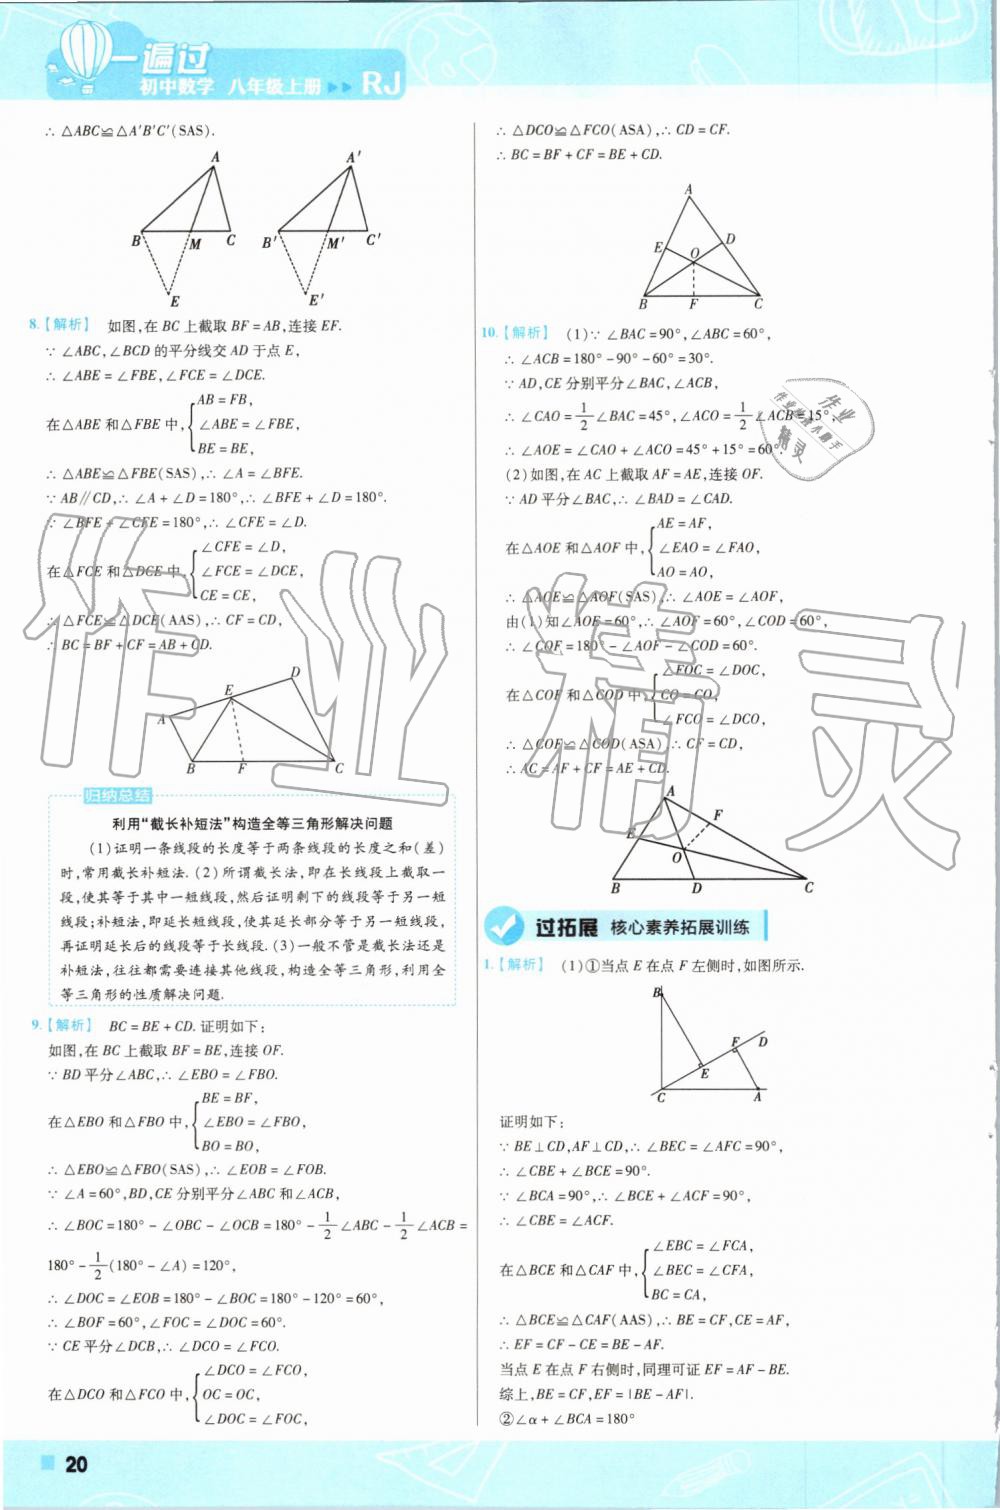 一遍过
初中数学 八年级上册 RJ
∴ △ABC≌△A′B′C′(SAS).
A
B M C
E
A′
B′ M′ C′
E′
8.【解析】 如图,在 BC 上截取 BF=AB,连接 EF.
∵ ∠ABC,∠BCD 的平分线交 AD 于点 E,
∴ ∠ABE=∠FBE,∠FCE=∠DCE.
AB=FB,
在△ABE 和△FBE 中, ∠ABE=∠FBE,
BE=BE,
∴ △ABE≌△FBE(SAS),∴ ∠A=∠BFE.
∵ AB∥CD,∴ ∠A+∠D=180°,∴ ∠BFE+∠D=180°.
∵ ∠BFE+∠CFE=180°,∴ ∠CFE=∠D.
∠CFE=∠D,
在△FCE 和△DCE 中, ∠FCE=∠DCE,
CE=CE,
∴ △FCE≌△DCE(AAS),∴ CF=CD,
∴ BC=BF+CF=AB+CD.
D
E
A
B F C
归纳总结
利用“截长补短法”构造全等三角形解决问题
(1)证明一条线段的长度等于两条线段的长度之和(差)
时,常用截长补短法. (2)所谓截长法,即在长线段上截取一
段,使其等于其中一短线段,然后证明剩下的线段等于另一短
线段;补短法,即延长短线段,使其延长部分等于另一短线段,
再证明延长后的线段等于长线段. (3)一般不管是截长法还是
补短法,往往都需要连接其他线段,构造全等三角形,利用全
等三角形的性质解决问题.
9.【解析】 BC=BE+CD. 证明如下:
如图,在 BC 上截取 BF=BE,连接 OF.
∵ BD 平分∠ABC,∴ ∠EBO=∠FBO.
BE=BF,
在△EBO 和△FBO 中, ∠EBO=∠FBO,
BO=BO,
∴ △EBO≌△FBO(SAS),∴ ∠EOB=∠FOB.
∵ ∠A=60°,BD,CE 分别平分∠ABC 和∠ACB,
∴ ∠BOC=180°-∠OBC-∠OCB=180°-1/2∠ABC-1/2∠ACB=
180°-1/2(180°-∠A)=120°,
∴ ∠DOC=∠EOB=180°-∠BOC=180°-120°=60°,
∴ ∠BOF=60°,∠FOC=∠DOC=60°.
∵ CE 平分∠DCB,∴ ∠DCO=∠FCO.
∠DCO=∠FCO,
在△DCO 和△FCO 中, OC=OC,
∠DOC=∠FOC,
∴ △DCO≌△FCO(ASA),∴ CD=CF.
∴ BC=BF+CF=BE+CD.
A
E D
O
B F C
10.【解析】 (1)∵ ∠BAC=90°,∠ABC=60°,
∴ ∠ACB=180°-90°-60°=30°.
∵ AD,CE 分别平分∠BAC,∠ACB,
∴ ∠CAO=1/2∠BAC=45°,∠ACO=1/2∠ACB=15°,
∴ ∠AOE=∠CAO+∠ACO=45°+15°=60°.
(2)如图,在 AC 上截取 AF=AE,连接 OF.
∵ AD 平分∠BAC,∴ ∠BAD=∠CAD.
AE=AF,
在△AOE 和△AOF 中, ∠EAO=∠FAO,
AO=AO,
∴ △AOE≌△AOF(SAS),∴ ∠AOE=∠AOF,
由(1)知∠AOE=60°,∴ ∠AOF=60°,∠COD=60°,
∴ ∠COF=180°-∠AOF-∠COD=60°.
∠FOC=∠DOC,
在△COF 和△COD 中, CO=CO,
∠FCO=∠DCO,
∴ △COF≌△COD(ASA),∴ CF=CD,
∴ AC=AF+CF=AE+CD.
A
F
E
O
B D C
过拓展 核心素养拓展训练
1.【解析】 (1)①当点 E 在点 F 左侧时,如图所示.
B
F D
E
C A
证明如下:
∵ BE⊥CD,AF⊥CD,∴ ∠BEC=∠AFC=90°,
∴ ∠CBE+∠BCE=90°.
∵ ∠BCA=90°,∴ ∠BCE+∠ACF=90°,
∴ ∠CBE=∠ACF.
∠EBC=∠FCA,
在△BCE 和△CAF 中, ∠BEC=∠CFA,
BC=CA,
∴ △BCE≌△CAF(AAS),∴ BE=CF,CE=AF,
∴ EF=CF-CE=BE-AF.
当点 E 在点 F 右侧时,同理可证 EF=AF-BE.
综上,BE=CF,EF=|BE-AF|.
②∠α+∠BCA=180°
20
作业精灵
作业
精灵